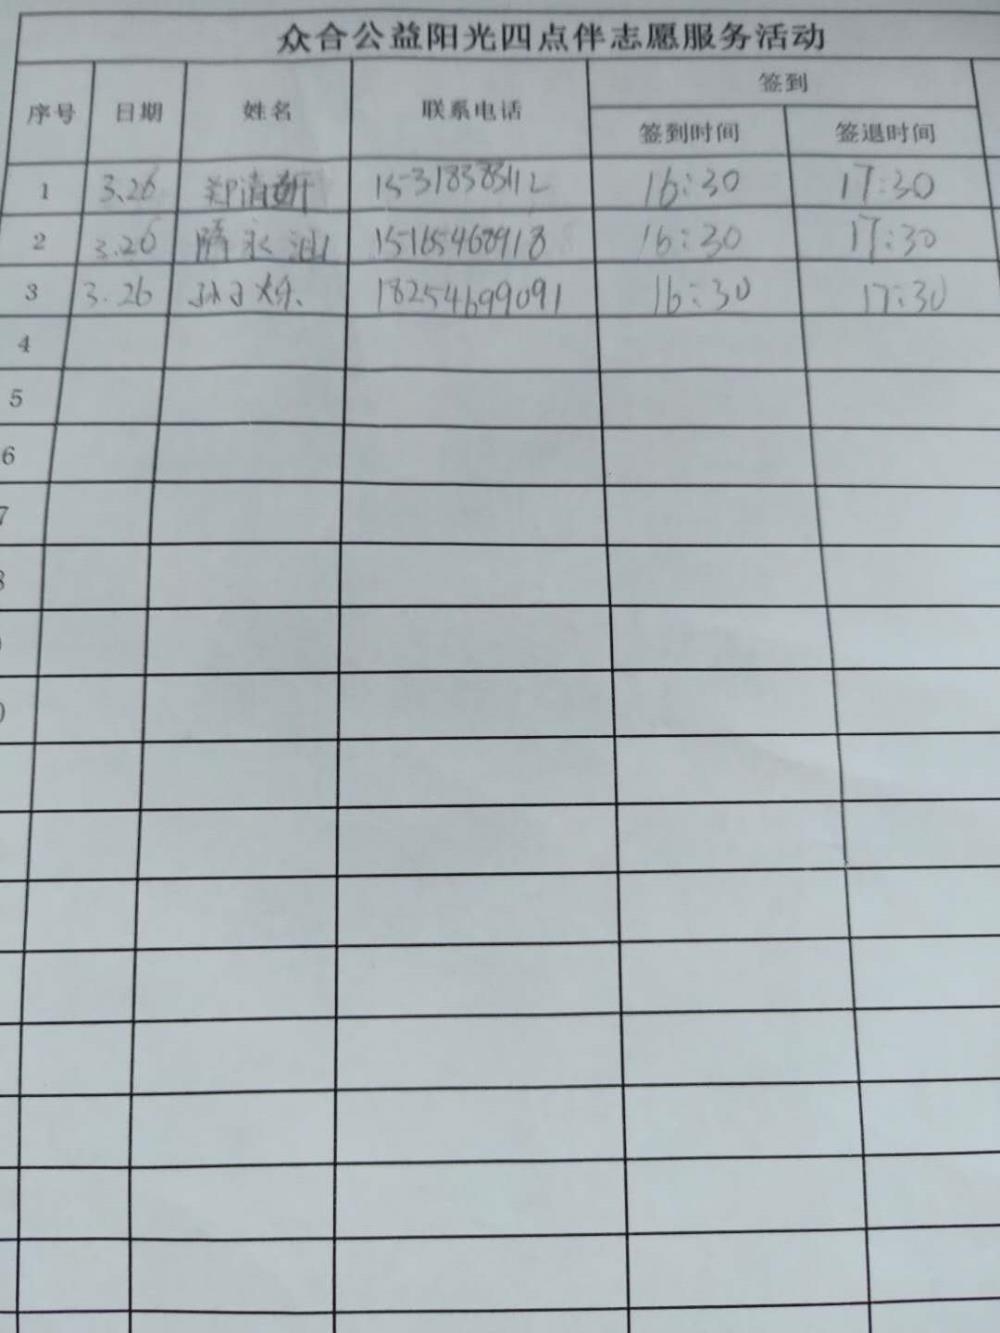 众合公益阳光四点伴志愿服务活动
序号 日期 姓名 联系电话 签到
签到时间 签退时间
1 3.26 郑清妍 15318383412 16:30 17:30
2 3.26 隋永 15165468918 16:30 17:30
3 3.26 18254699091 16:30 17:30
4
5
6
7
8